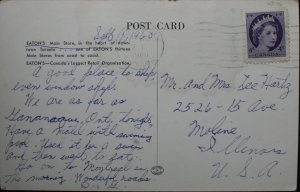 POST CARD
Sept 1, 1960
EATON'S Main Store, in the heart of down
town Toronto ... one of EATON'S thirteen
Main Stores from coast to coast.
EATON'S — Canada's Largest Retail Organization.
A good place to shop
even window shop.
We are as far as
Gananoque, Ont. tonight
Have a Motel with swimming
pool. Used it for a swim
and then
Go on to Montreal in
the morning. Wonderful roads
Mr. and Mrs. Lee Hartz
2526-15 Ave
Moline
Illinois
U.S.A.